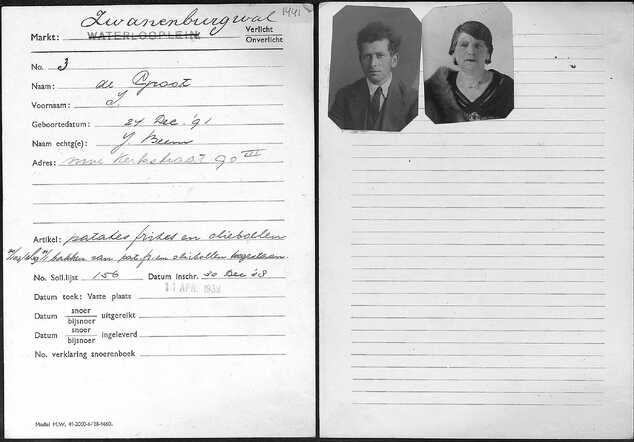 Zwanenburgwal 1941
Markt: WATERLOOPLEIN Verlicht
Onverlicht
No. 3
Naam: de Groot
Voornaam: I.
Geboortedatum: 24 Dec. '91
Naam echtg(e): J. Beem
Adres: Kerkstraat 90 III
Artikel: patates frites en oliebollen
bakken van pat. fr. en oliebollen toegestaan
No. Soll.lijst 156 Datum inschr. 30 Dec '38
11 APR 1939
Datum toek: Vaste plaats
Datum snoer uitgereikt
bijsnoer
Datum snoer ingeleverd
bijsnoer
No. verklaring snoerenboek
Model M.W. 41-2000-6/'38-1460.